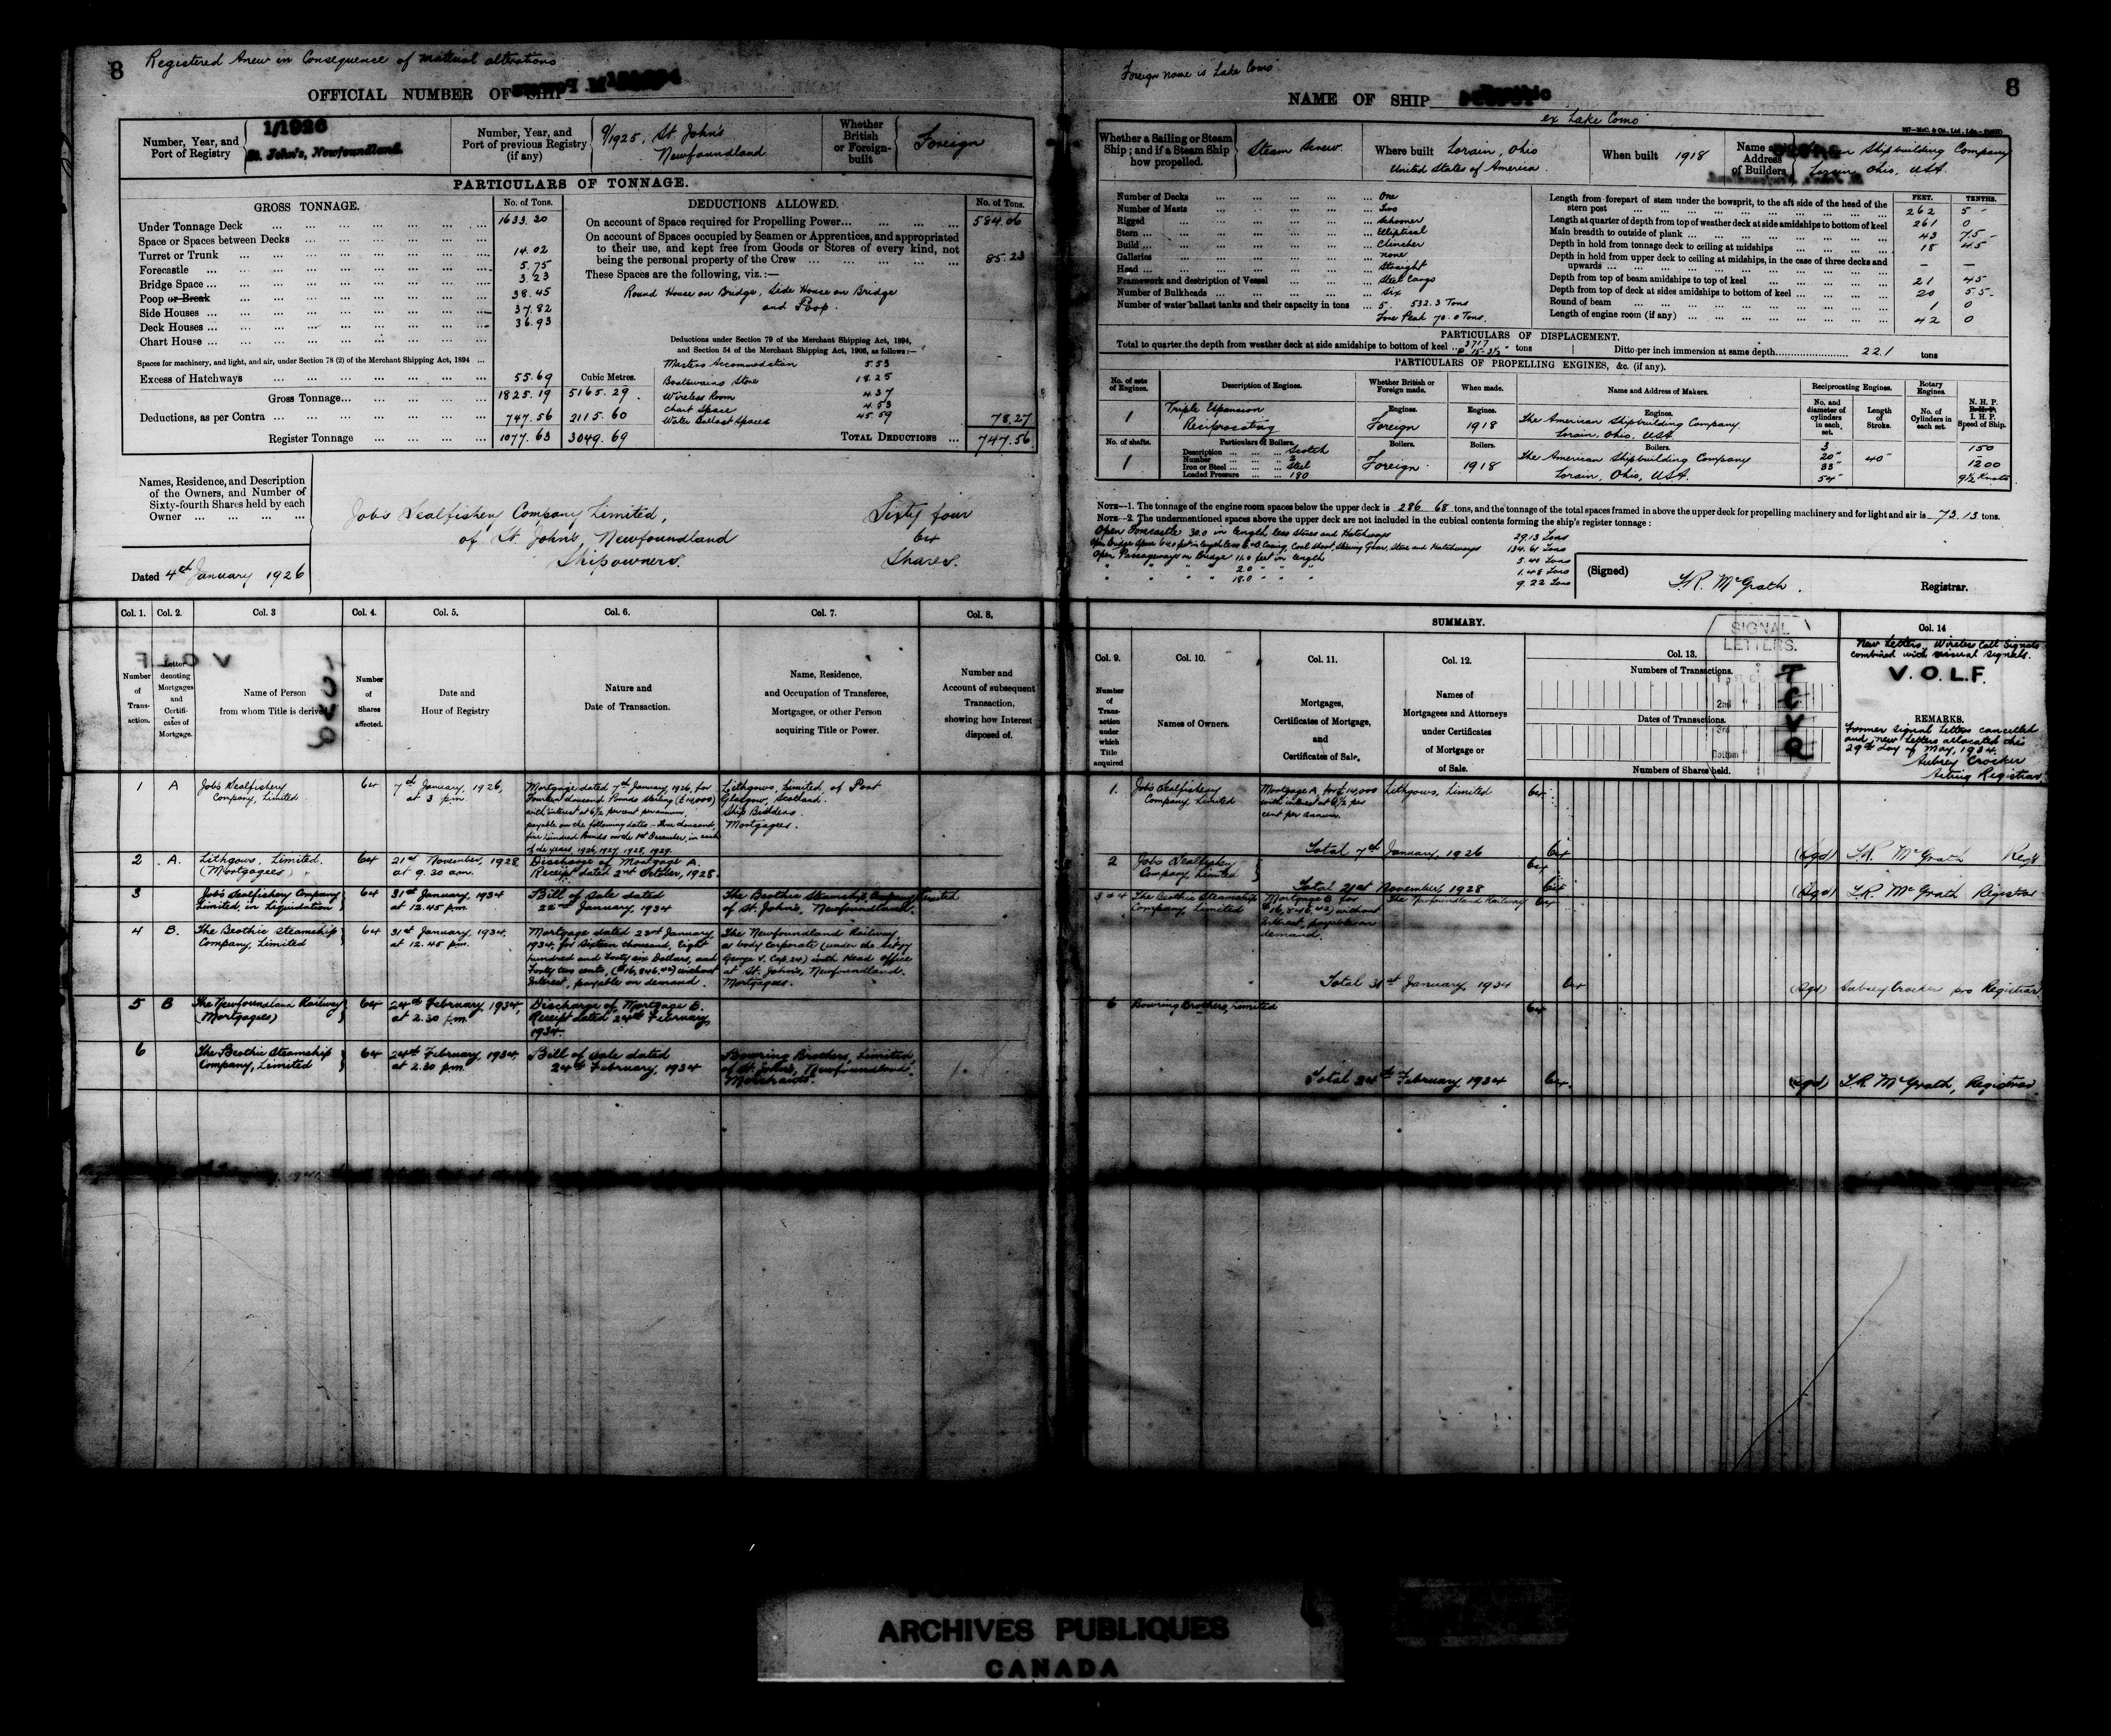 8
Registered Anew in Consequence of material alterations
OFFICIAL NUMBER OF SHIP
Number, Year, and
Port of Registry
1/1926
St. John's, Newfoundland.
Number, Year, and
Port of previous Registry
(if any)
9/1925, St. John's
Newfoundland
Whether
British
or Foreign-
built
Foreign
PARTICULARS OF TONNAGE.
GROSS TONNAGE.
No. of Tons.
Under Tonnage Deck 1633.30
Space or Spaces between Decks
Turret or Trunk 14.02
Forecastle 5.75
Bridge Space 3.23
Poop or Break 38.45
Side Houses 37.82
Deck Houses 36.93
Chart House
Spaces for machinery, and light, and air, under Section 78 (2) of the Merchant Shipping Act, 1894
Excess of Hatchways 55.69
Cubic Metres.
Gross Tonnage 1825.19 5165.29
Deductions, as per Contra 747.56 2115.60
Register Tonnage 1077.63 3049.69
DEDUCTIONS ALLOWED.
No. of Tons.
On account of Space required for Propelling Power 584.06
On account of Spaces occupied by Seamen or Apprentices, and appropriated
to their use, and kept free from Goods or Stores of every kind, not
being the personal property of the Crew 85.23
These Spaces are the following, viz.:—
Round House on Bridge, Side House on Bridge
and Poop.
Deductions under Section 79 of the Merchant Shipping Act, 1894,
and Section 54 of the Merchant Shipping Act, 1906, as follows:—
Masters Accommodation 5.53
Boatswains Store 18.25
Wireless Room 4.37
Chart Space 4.53
Water Ballast Spaces 45.59
78.27
TOTAL DEDUCTIONS 747.56
Names, Residence, and Description
of the Owners, and Number of
Sixty-fourth Shares held by each
Owner
Job's Sealfishery Company Limited, Sixty four
of St. John's, Newfoundland 64
Shipowners. Shares.
Dated 4th January 1926
Col. 1. Col. 2. Col. 3 Col. 4. Col. 5. Col. 6. Col. 7. Col. 8.
Number
of
Trans-
action.
Letter
denoting
Mortgages
and
Certifi-
cates of
Mortgage.
Name of Person
from whom Title is derived
Number
of
Shares
affected.
Date and
Hour of Registry
Nature and
Date of Transaction.
Name, Residence,
and Occupation of Transferee,
Mortgagee, or other Person
acquiring Title or Power.
Number and
Account of subsequent
Transaction,
showing how Interest
disposed of.
1 A
Job's Sealfishery
Company, Limited
64
7th January, 1926,
at 3 p.m.
Mortgage dated 7th January, 1926, for
Fourteen thousand Pounds Sterling (£14,000)
with interest at 6½ per cent per annum,
payable on the following dates:- Three thousand,
five hundred Pounds on the 1st December, in each
of the years, 1926, 1927, 1928, 1929.
Lithgows, Limited, of Port
Glasgow, Scotland.
Ship Builders.
Mortgagees.
2 A.
Lithgows, Limited.
(Mortgagees)
64
21st November, 1928,
at 9.30 am.
Discharge of Mortgage A.
Receipt dated 2nd October, 1928.
3
Job's Sealfishery Company
Limited, in Liquidation
64
31st January, 1934
at 12.45 p.m.
Bill of Sale dated
22nd January, 1934
The Beothic Steamship Company Limited
of St. John's, Newfoundland.
4 B.
The Beothic Steamship
Company, Limited
64
31st January, 1934,
at 12.45 p.m.
Mortgage dated 23rd January,
1934, for Sixteen thousand, Eight
hundred and Forty six Dollars, and
Forty two cents, ($16,846.42) without
Interest, payable on demand.
The Newfoundland Railway,
a body Corporate (under the Act
George V. Cap.) with Head Office
at St. John's, Newfoundland.
Mortgagees.
5 B
The Newfoundland Railway
(Mortgagees)
64
24th February, 1934,
at 2.30 p.m.
Discharge of Mortgage B.
Receipt dated 24th February
1934.
6
The Beothic Steamship
Company, Limited
64
24th February, 1934
at 2.30 p.m.
Bill of Sale dated
24th February, 1934
Bowring Brothers, Limited,
of St. John's, Newfoundland.
Merchants.
8
Foreign name is Lake Como
NAME OF SHIP
ex Lake Como
Whether a Sailing or Steam
Ship; and if a Steam Ship
how propelled.
Steam Screw.
Where built Lorain, Ohio
United States of America.
When built 1918
Name
Address
of Builders
Shipbuilding Company
Lorain, Ohio, USA.
Number of Decks One
Number of Masts Two
Rigged Schooner
Stern Elliptical
Build Clincher
Galleries none
Head Straight
Framework and description of Vessel Steel Cargo
Number of Bulkheads Six
Number of water ballast tanks and their capacity in tons 5. 532.3 Tons
Fore Peak 70.0 Tons.
FEET. TENTHS.
Length from forepart of stem under the bowsprit, to the aft side of the head of the
stern post 262 5
Length at quarter of depth from top of weather deck at side amidships to bottom of keel 261 0
Main breadth to outside of plank 43 75
Depth in hold from tonnage deck to ceiling at midships 18 45
Depth in hold from upper deck to ceiling at midships, in the case of three decks and
upwards — —
Depth from top of beam amidships to top of keel 21 45
Depth from top of deck at sides amidships to bottom of keel 20 55
Round of beam 1 0
Length of engine room (if any) 42 0
PARTICULARS OF DISPLACEMENT.
Total to quarter the depth from weather deck at side amidships to bottom of keel 3717 tons
Ditto per inch immersion at same depth 22.1 tons
PARTICULARS OF PROPELLING ENGINES, &c. (if any).
No. of sets
of Engines.
Description of Engines.
Whether British or
Foreign made.
When made.
Name and Address of Makers.
Reciprocating Engines.
Rotary
Engines.
No. and
diameter of
cylinders
in each
set.
Length
of
Stroke.
No. of
Cylinders in
each set.
N. H. P.
I. H. P.
Speed of Ship.
1
Triple Expansion
Reciprocating
Engines.
Foreign
Engines.
1918
Engines.
The American Shipbuilding Company
Lorain, Ohio, USA.
No. of shafts.
1
Particulars of Boilers.
Description Scotch
Number 2
Iron or Steel Steel
Loaded Pressure 180
Boilers.
Foreign
Boilers.
1918
Boilers.
The American Shipbuilding Company
Lorain, Ohio, USA.
3
20"
33"
54"
40"
150
1200
9½ Knots
NOTE—1. The tonnage of the engine room spaces below the upper deck is 286.68 tons, and the tonnage of the total spaces framed in above the upper deck for propelling machinery and for light and air is 73.13 tons.
NOTE—2. The undermentioned spaces above the upper deck are not included in the cubical contents forming the ship's register tonnage:
Open Forecastle 30.0 in length less Stores and Hatchways 29.13 Tons
134.61 Tons
Open Passageways on Bridge 11.0 feet in length 5.40 Tons
" " " " 2.0 " " " 1.48 Tons
" " " " 18.0 " " " 9.22 Tons
(Signed) T.R. McGrath.
Registrar.
SUMMARY.
Col. 9. Col. 10. Col. 11. Col. 12. Col. 13. Col. 14
Number
of
Trans-
action
under
which
Title
acquired
Names of Owners.
Mortgages,
Certificates of Mortgage,
and
Certificates of Sale.
Names of
Mortgagees and Attorneys
under Certificates
of Mortgage or
of Sale.
Numbers of Transactions.
Dates of Transactions.
Numbers of Shares held.
SIGNAL
LETTERS.
T
C
V
Q
New Letters, Wireless Call Signals
combined with visual signals.
V. O. L. F.
REMARKS.
Former signal letters cancelled
and new letters allocated this
29th day of May, 1934.
Aubrey Crocker
Acting Registrar
1.
Job's Sealfishery
Company, Limited
Mortgage A, for £14,000
with interest at 6½ per
cent per annum.
Lithgows, Limited
64
Total 7th January, 1926 64
(Sgd) T.R. McGrath Regr
2
Job's Sealfishery
Company, Limited
64
Total 21st November, 1928 64
(Sgd) T.R. McGrath Registrar
3 & 4
The Beothic Steamship
Company, Limited
Mortgage B for
$16,846.42) without
Interest, payable on
demand.
The Newfoundland Railway
64
Total 31st January, 1934 64
(Sgd) Aubrey Crocker pro Registrar
6
Bowring Brothers, Limited
64
Total 24th February, 1934 64.
(Sgd) T.R. McGrath, Registrar
ARCHIVES PUBLIQUES
CANADA